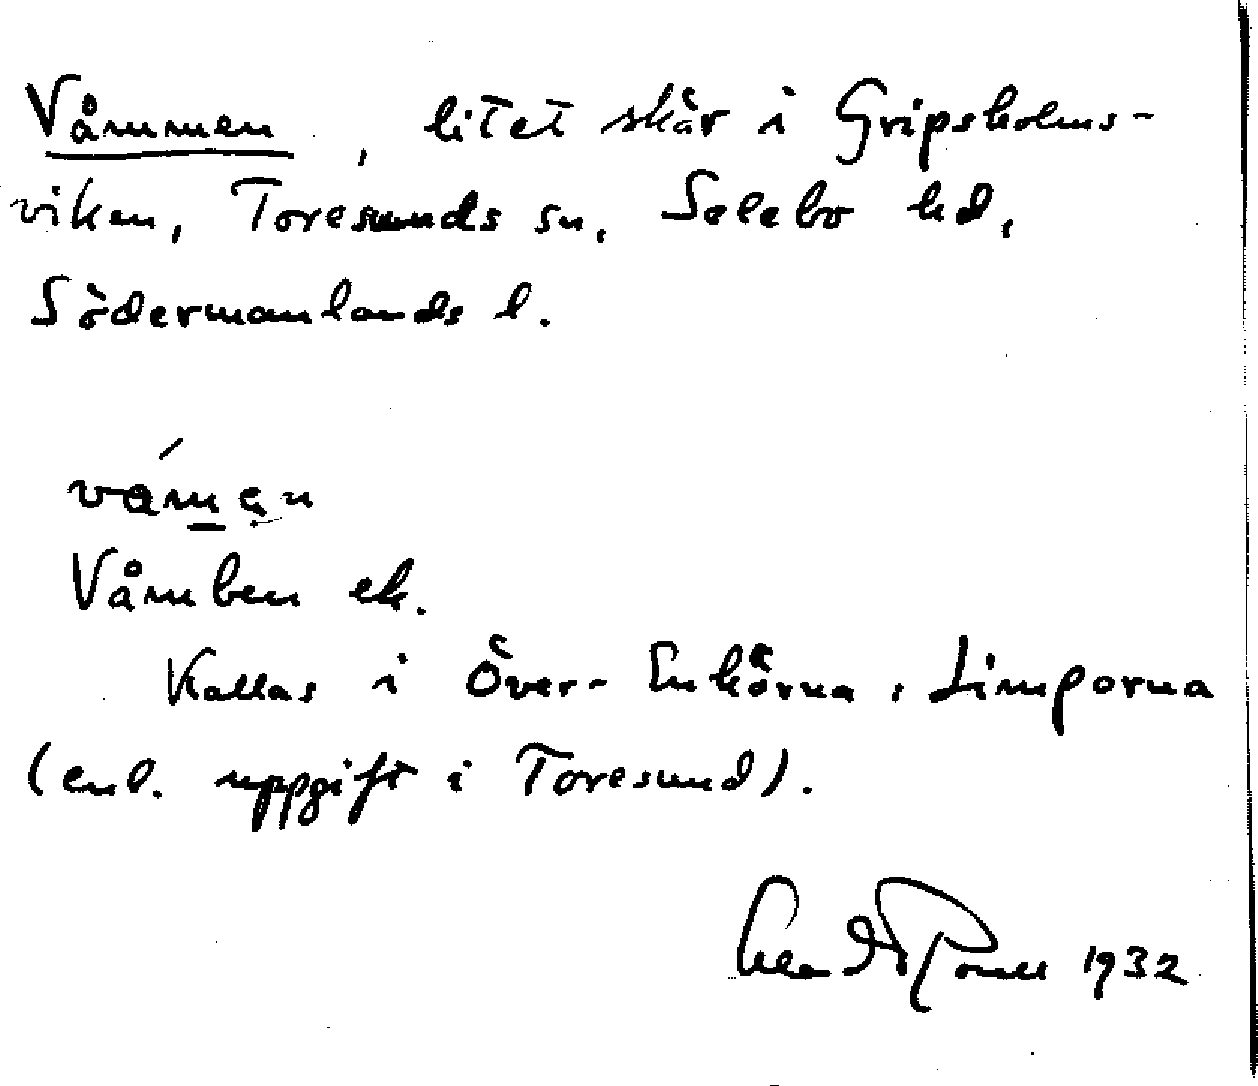 Våmmen, litet skär i Gripsholms-
viken, Toresunds sn, Selebo hd,
Södermanlands l.
Våmben ek.
Kallas i Över-Enhörna, Limporna
(enl. uppgift i Toresund).
1932